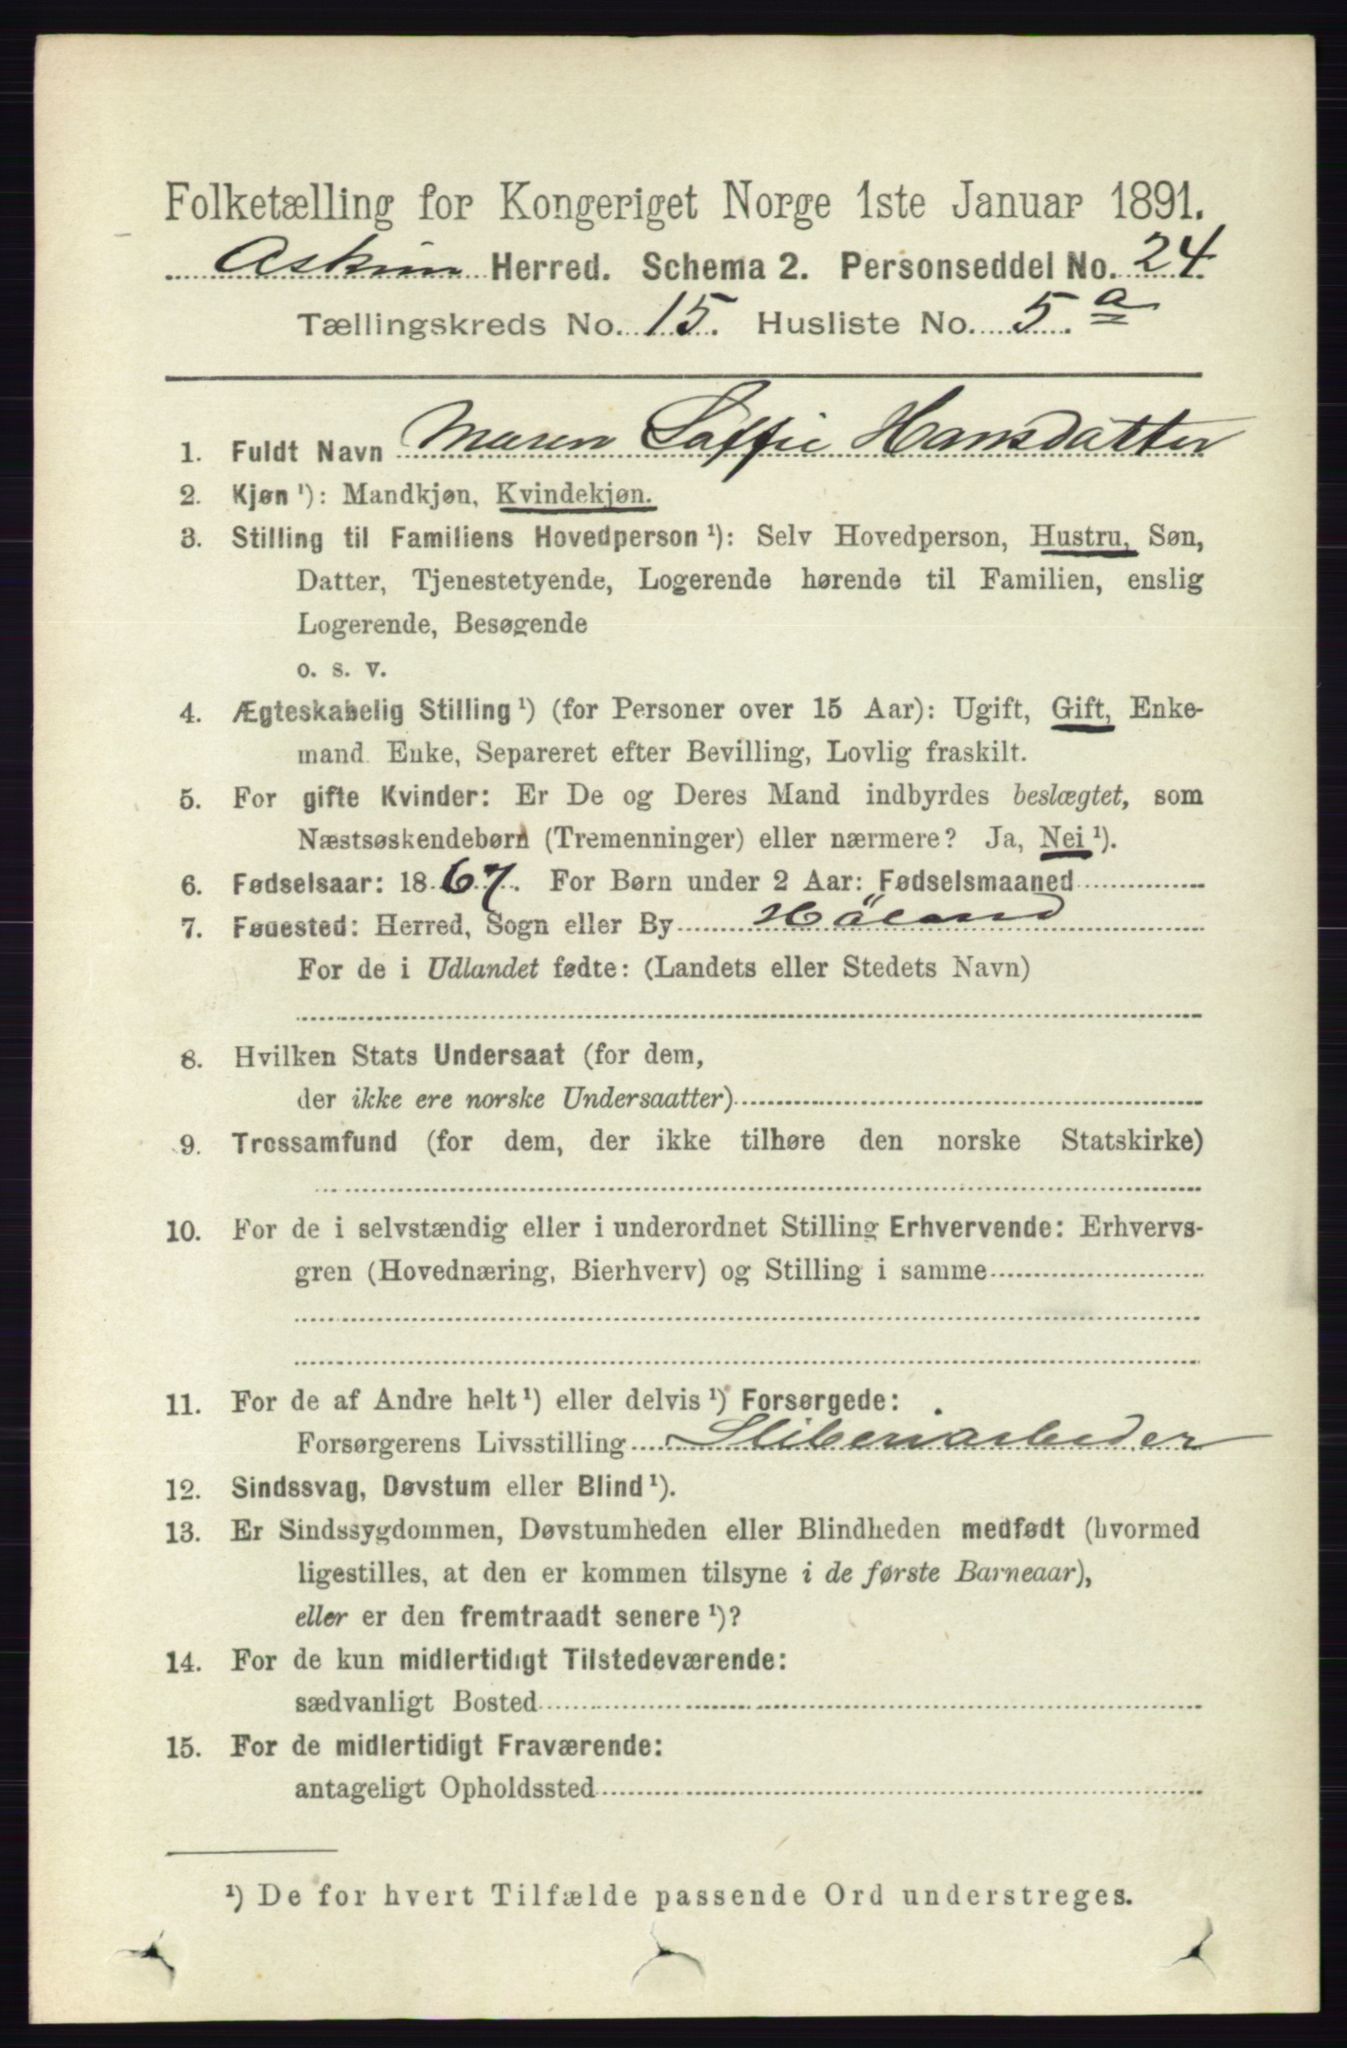 Folketælling for Kongeriget Norge 1ste Januar 1891.
Askim Herred. Schema 2. Personseddel No. 24
Tællingskreds No. 15. Husliste No. 5. a
1. Fuldt Navn Maren Soffie Hansdatter
2. Kjøn ¹): Mandkjøn, Kvindekjøn.
3. Stilling til Familiens Hovedperson ¹): Selv Hovedperson, Hustru, Søn,
Datter, Tjenestetyende, Logerende hørende til Familien, enslig
Logerende, Besøgende
o. s. v.
4. Ægteskabelig Stilling ¹) (for Personer over 15 Aar): Ugift, Gift, Enke-
mand Enke, Separeret efter Bevilling, Lovlig fraskilt.
5. For gifte Kvinder: Er De og Deres Mand indbyrdes beslægtet, som
Næstsøskendebørn (Tremenninger) eller nærmere? Ja, Nei ¹).
6. Fødselsaar: 1867. For Børn under 2 Aar: Fødselsmaaned
7. Føuested: Herred, Sogn eller By Höland
For de i Udlandet fødte: (Landets eller Stedets Navn)
8. Hvilken Stats Undersaat (for dem,
der ikke ere norske Undersaatter)
9. Trossamfund (for dem, der ikke tilhøre den norske Statskirke)
10. For de i selvstændig eller i underordnet Stilling Erhvervende: Erhvervs-
gren (Hovednæring, Bierhverv) og Stilling i samme
11. For de af Andre helt ¹) eller delvis ¹) Forsørgede:
Forsørgerens Livsstilling Sliberiarbeder
12. Sindssvag, Døvstum eller Blind ¹).
13. Er Sindssygdommen, Døvstumheden eller Blindheden medfødt (hvormed
ligestilles, at den er kommen tilsyne i de første Barneaar),
eller er den fremtraadt senere ¹)?
14. For de kun midlertidigt Tilstedeværende:
sædvanligt Bosted
15. For de midlertidigt Fraværende:
antageligt Opholdssted
¹) De for hvert Tilfælde passende Ord understreges.